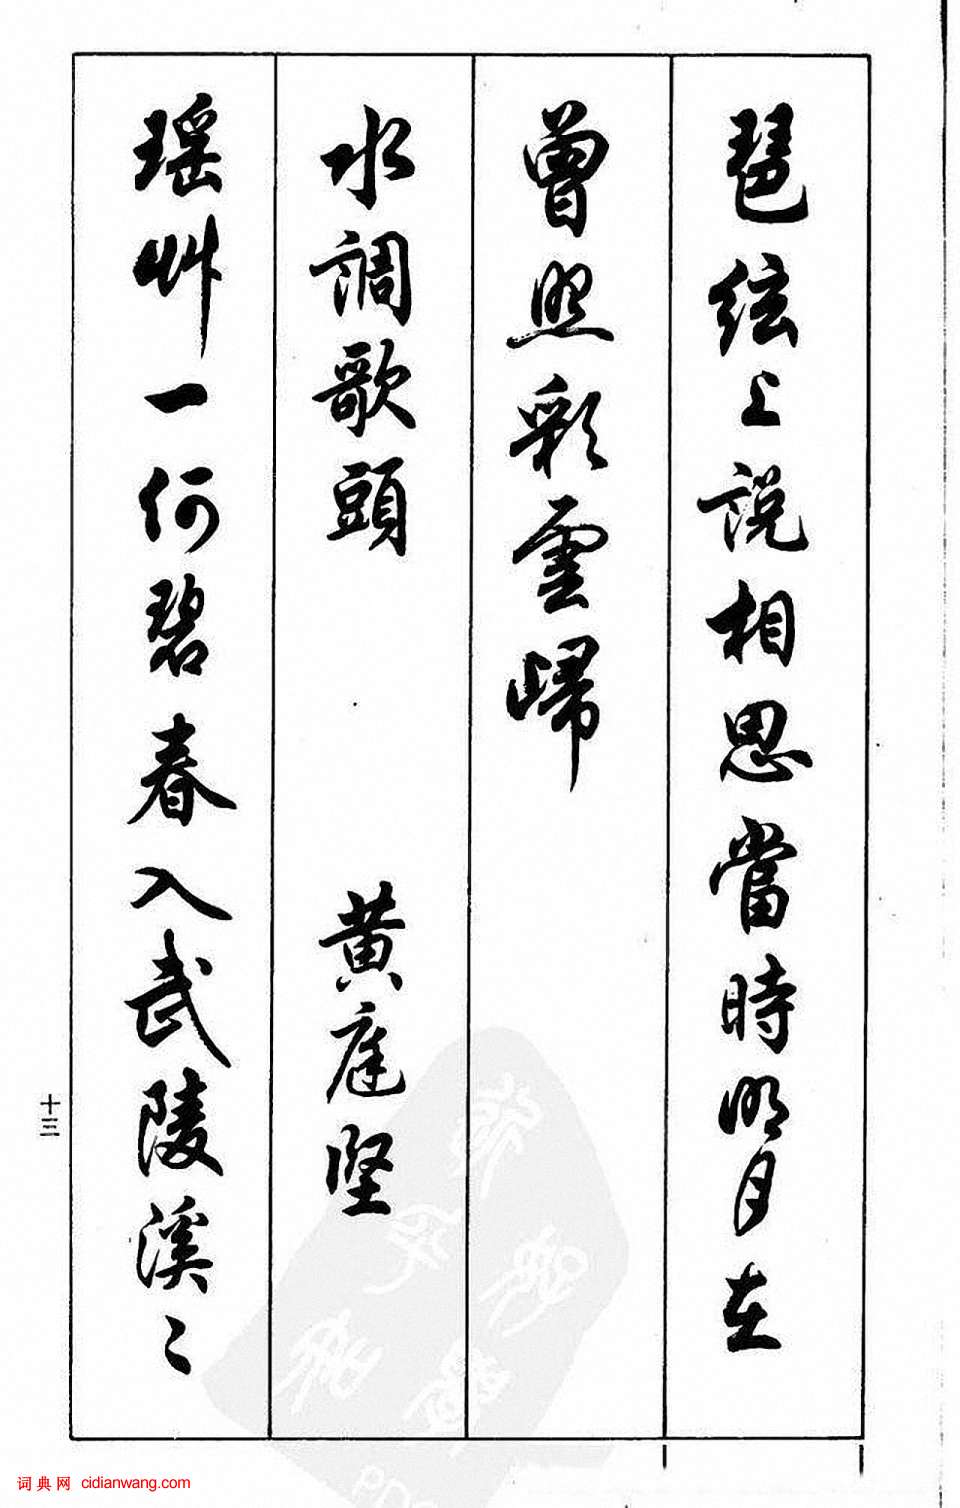 琶絃上説相思當時明月在
曾照彩雲歸
水調歌頭 黄庭堅
瑶艸一何碧春入武陵溪〻
十三
词典网 cidianwang.com